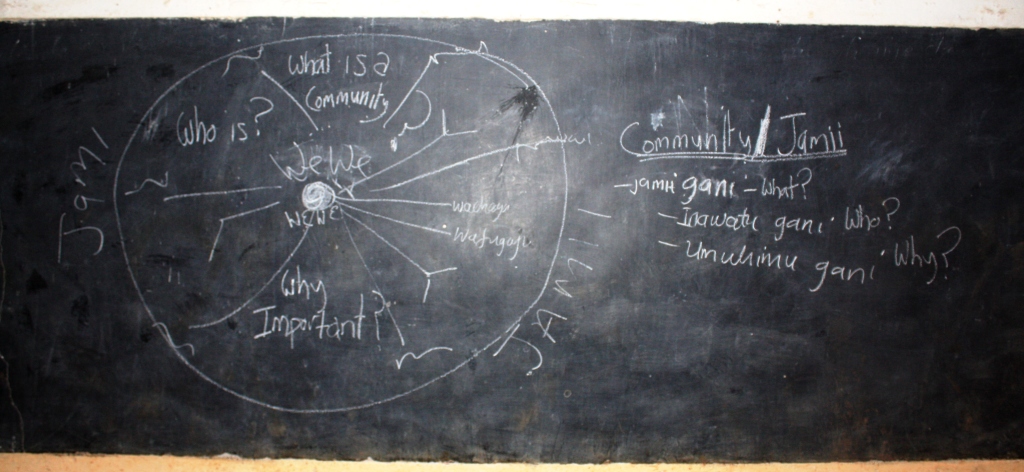 What is a
Community
Who is?
WeWe
WEWE
Why
Important?
Jamii
Jamii
wafugaji
Community / Jamii
- Jamii gani - What?
- Inawatu gani Who?
- Umuhimu gani Why?